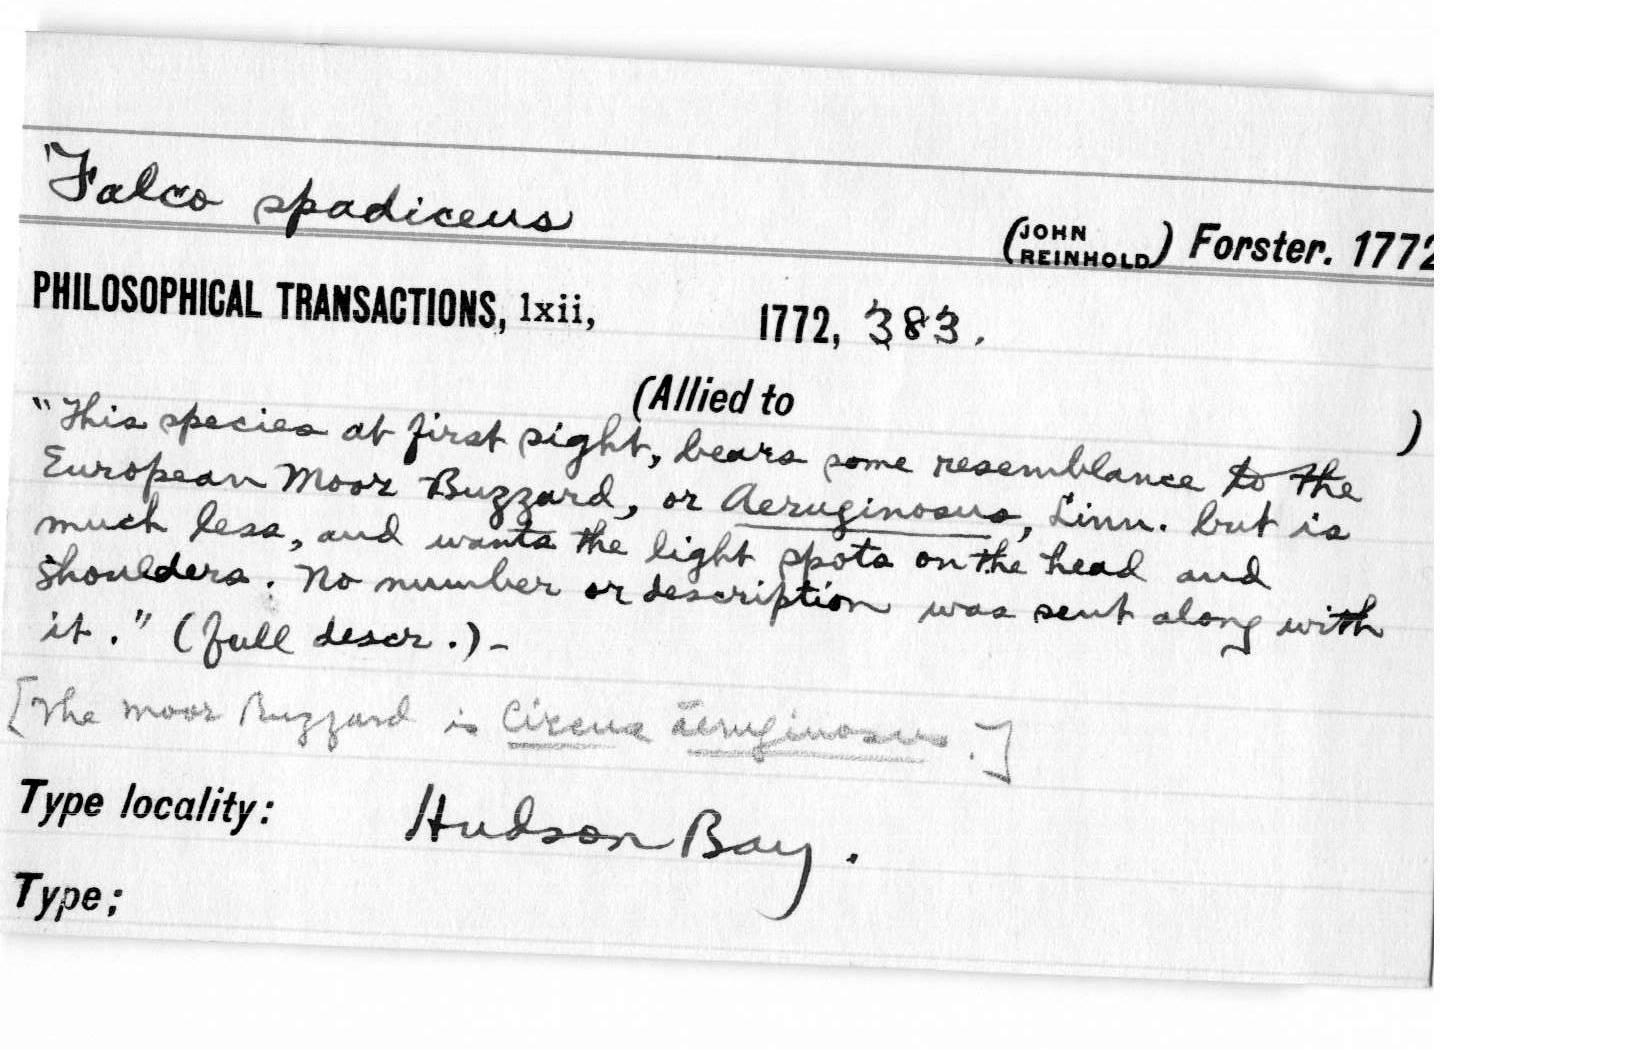 Falco spadiceus
(JOHN REINHOLD) Forster. 1772
PHILOSOPHICAL TRANSACTIONS, lxii, 1772, 383.
(Allied to )
"This species at first sight, bears some resemblance to the
European Moor Buzzard, or Aeruginosus, Linn. but is
much less, and wants the light spots on the head and
shoulders. No number or description was sent along with
it." (full descr.)-
[The Moor Buzzard is Circus aeruginosus.]
Type locality: Hudson Bay.
Type;